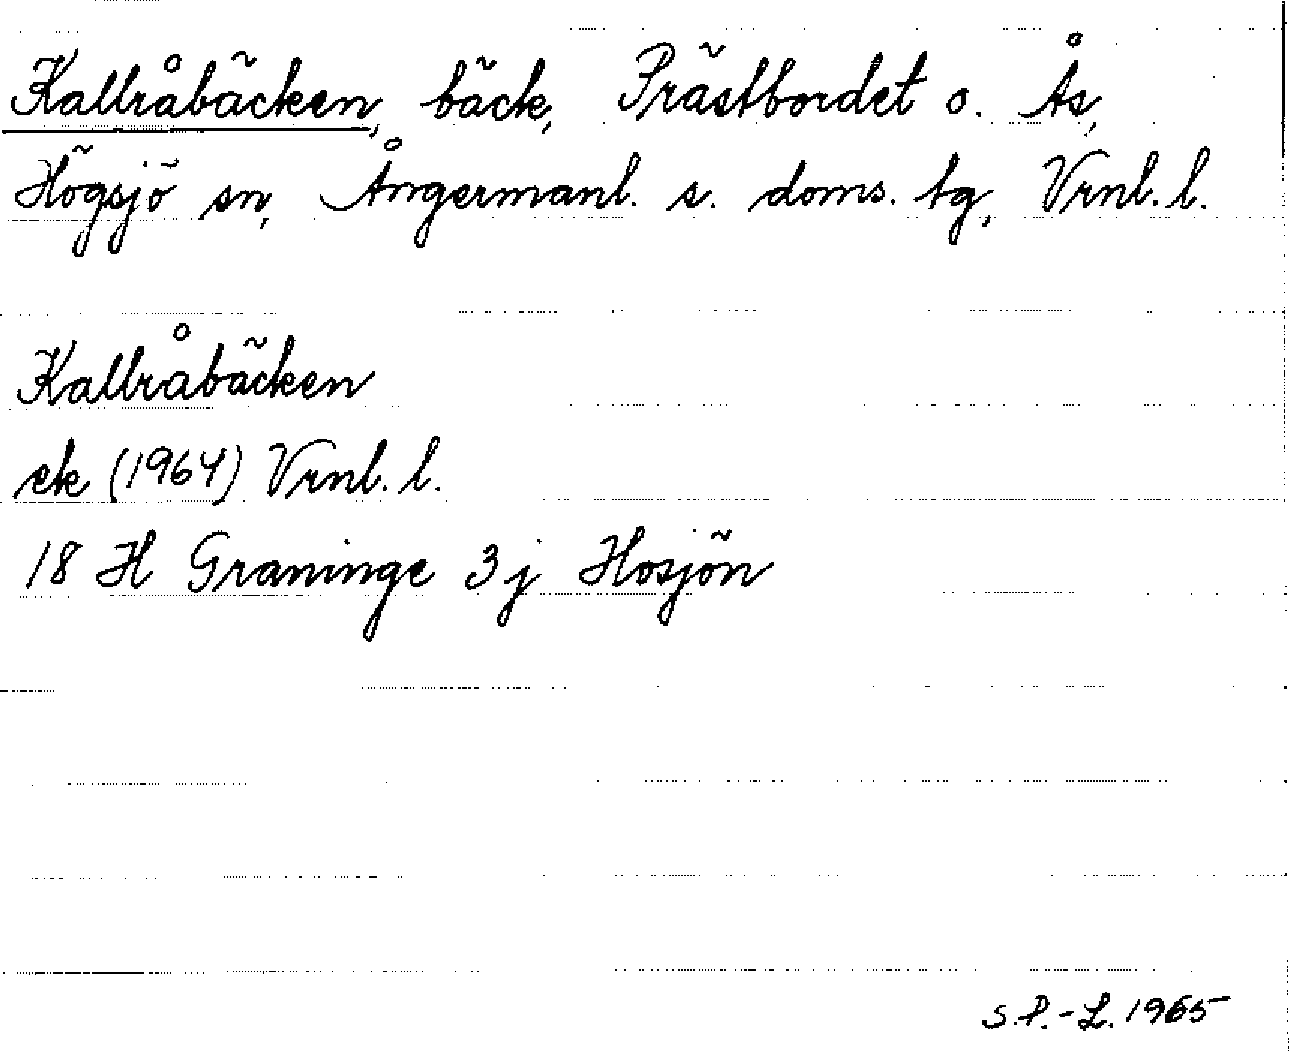 Kallråbäcken, bäck, Prästbordet o. Ås,
Högsjö sn, Ångermanl. s. doms. tg, Vrnl. l.
Kallråbäcken
ek (1964) Vrnl. l.
18 H Graninge 3j Hosjön
S.P.-L. 1965